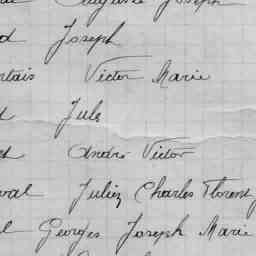 Auguste Joseph
Joseph
Victor Marie
Jule
André Victor
val Julien Charles Florent
Georges Joseph Marie